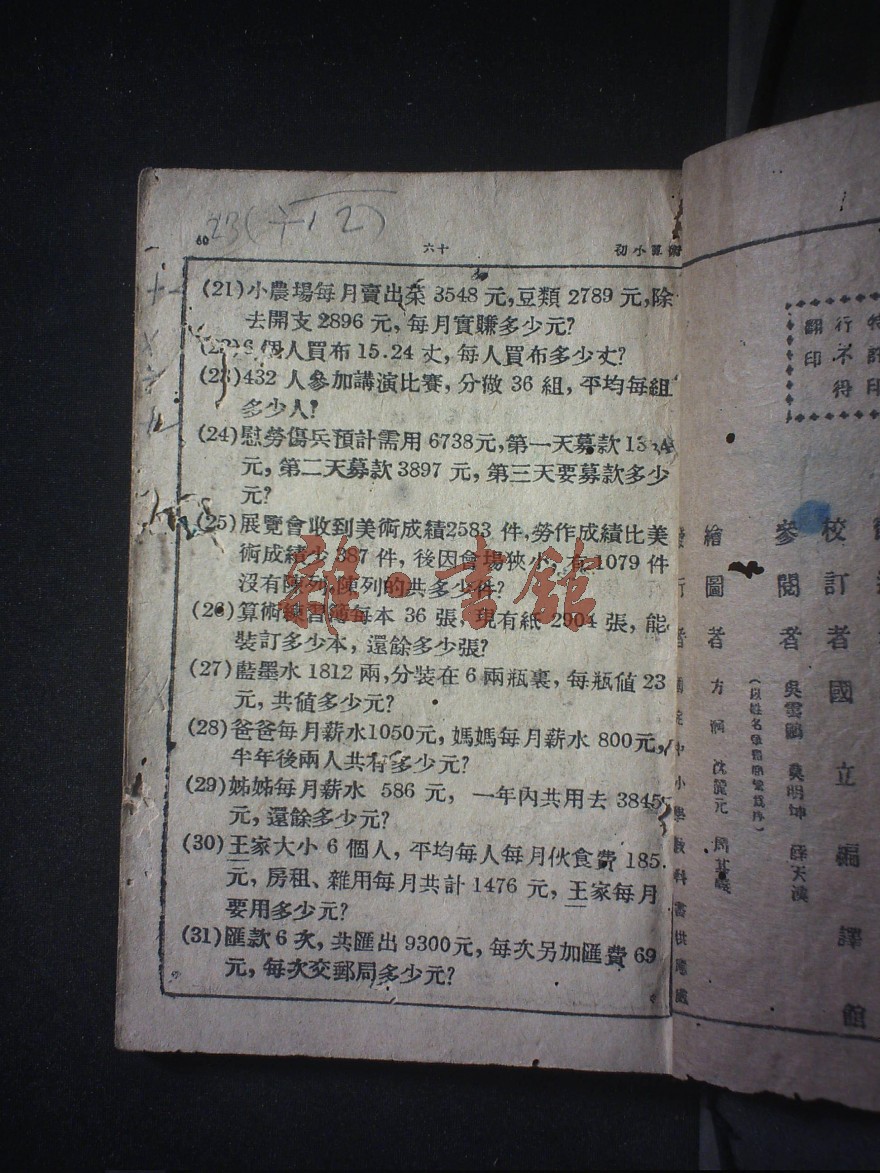 23(十12)
60
六十
初小算術
(21)小農場每月賣出菜 3548 元,豆類 2789 元,除
去開支 2896 元, 每月實賺多少元?
個人買布 15.24 丈, 每人買布多少丈?
(23)432 人參加講演比賽, 分做 36 組, 平均每組
多少人?
(24)慰勞傷兵預計需用 6738元,第一天募款
元, 第二天募款 3897 元, 第三天要募款多少
元?
(25)展覽會收到美術成績2583 件,勞作成績比美
術成績少 387 件, 後因會場狹小, 有 1079 件
沒有陳列,陳列的共多少件?
(26)算術練習簿每本 36 張, 現有紙 2904 張, 能
裝訂多少本, 還餘多少張?
(27)藍墨水 1812 兩,分裝在 6 兩瓶裏, 每瓶值 23
元, 共值多少元?
(28)爸爸每月薪水1050元, 媽媽每月薪水 800元,
半年後兩人共有多少元?
(29)姊姊每月薪水 586 元, 一年內共用去 3845
元, 還餘多少元?
(30)王家大小 6 個人, 平均每人每月伙食費 185
元, 房租、雜用每月共計 1476 元, 王家每月
要用多少元?
(31)匯款 6 次, 共匯出 9300元, 每次另加匯費 69
元, 每次交郵局多少元?
雜·書館
特許印
行不得
翻印
校訂者 國立編譯館
參閱者 吳雲鵬 莫明坤 薛天漢
(以姓名筆畫略繁為序)
繪圖者 方洞 沈麓元
發行者 國定中小學教科書供應處